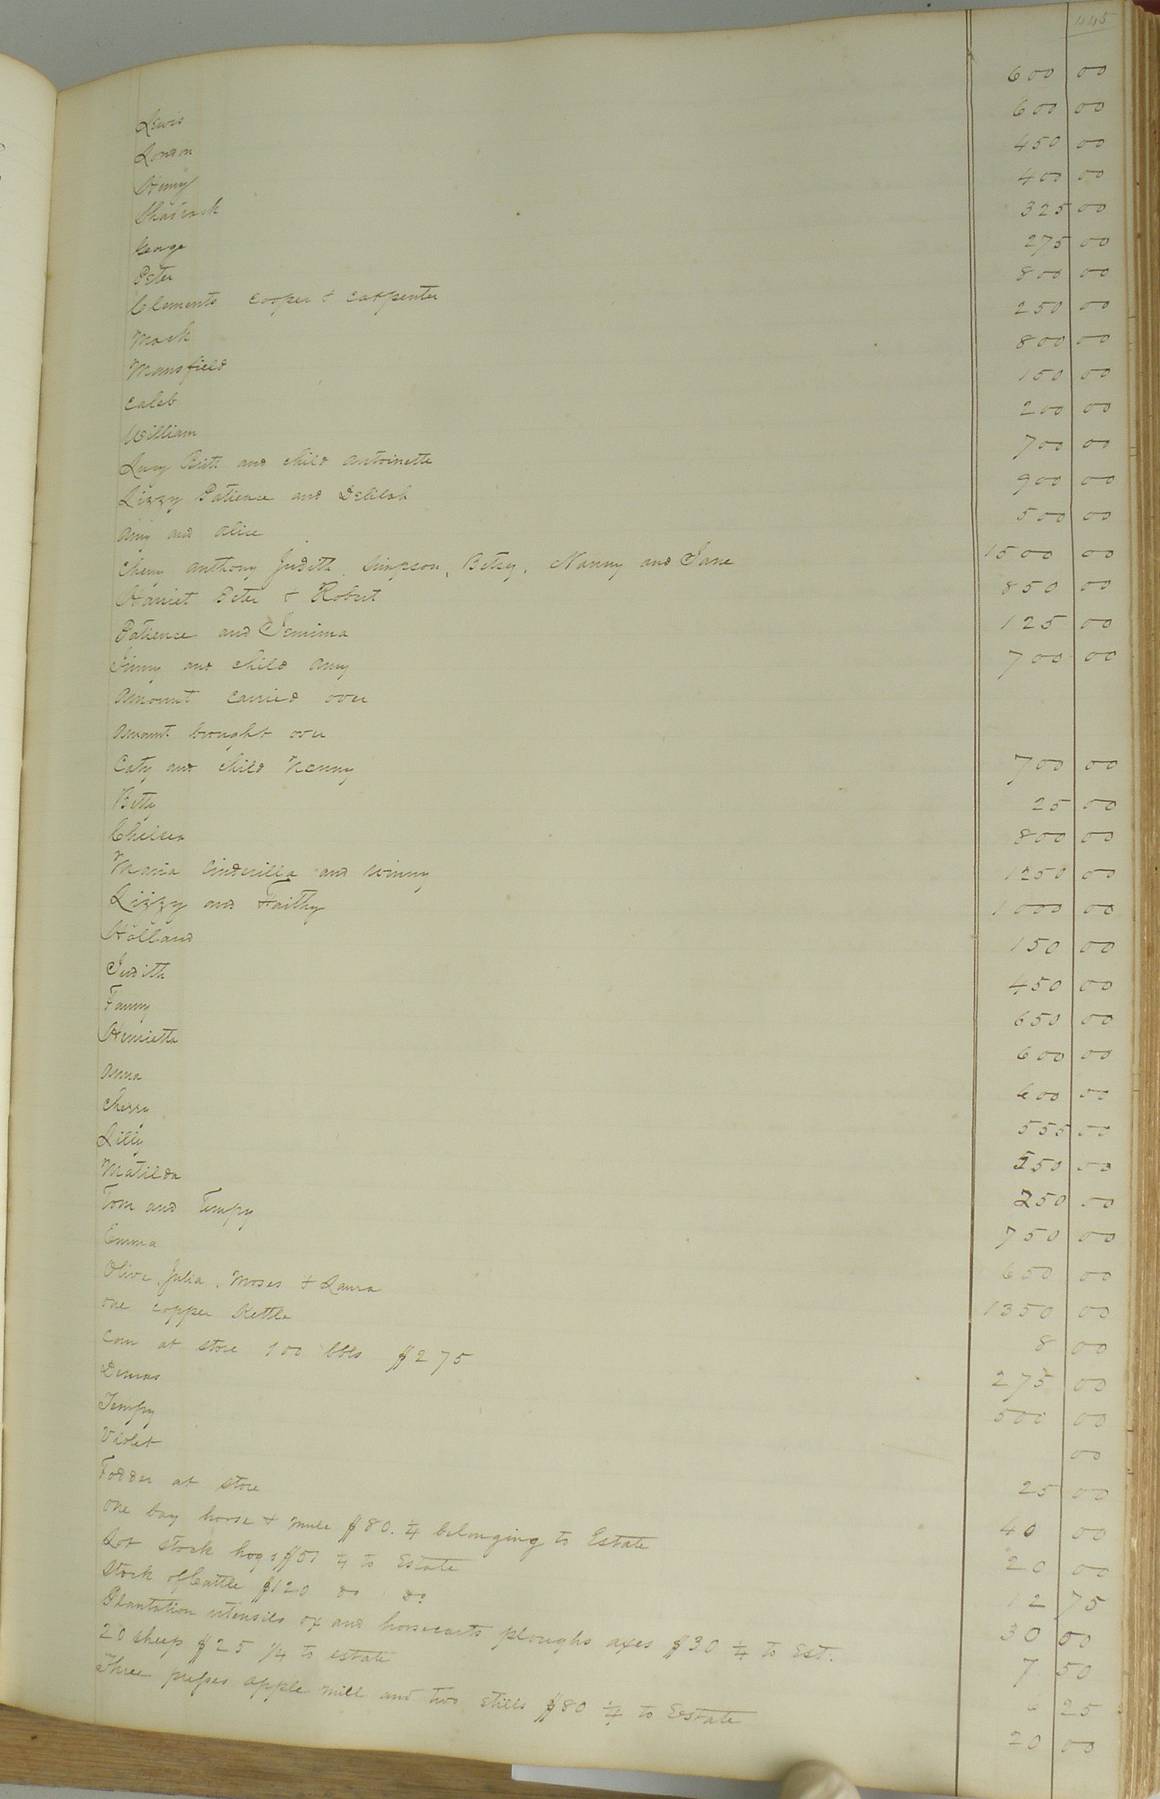 445
Lewis 600 00
London 600 00
Henry 450 00
Shadrach 400 00
George 325 00
Peter 275 00
Clements cooper & carpenter 800 00
Mack 250 00
Mansfield 800 00
Caleb 150 00
William 200 00
Lucy Britt and child Antoinette 700 00
Lizzy Patience and Delilah 900 00
Amy and Alice 500 00
Cherry Anthony Judith, Simpson, Betsy, Nanny and Jane 1500 00
Harriet Peter & Robert 850 00
Patience and Jemima 125 00
Jinny and child Amy 700 00
Amount carried over
Amount brought over
Caty and child Nanny 700 00
Betty 25 00
Chelsea 800 00
Maria Cinderilla and Winny 1250 00
Lizzy and Faithy 1000 00
Holland 150 00
Judith 450 00
Fanny 650 00
Henrietta 600 00
Anna 600 00
Cherry 555 00
Lilly 550 00
Matilda 250 00
Tom and Tempy 750 00
Emma 650 00
Olive, Julia, Moses & Laura 1350 00
One copper Kettle 8 00
Corn at store 100 bbls $2 75 275 00
Demas 500 00
Tempy 00
Violet 25 00
Fodder at store 40 00
One bay horse & mule $80. ¼ belonging to Estate 20 00
Lot stock hogs $51 ¼ to Estate 12 75
Stock of Cattle $120 do do 30 00
Plantation utensils ox and horsecarts ploughs axes $30 ¼ to Est. 7 50
20 sheep $25 ¼ to estate 6 25
Three presses apple mill and two stills $80 ¼ to Estate 20 00